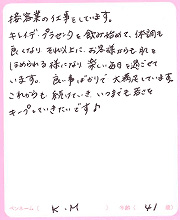 接客業の仕事をしています。
キレイ・デ・プラセンタを飲み始めて、体調も
良くなり それ以上に、お客様からも肌を
ほめられる様になり 楽しい毎日を過ごせて
います。 良い事ばかりで 大満足しています。
これからも 続けていき いつまでも若さを
キープしていきたいです♪
ペンネーム( K.M ) 年齢( 41 歳)